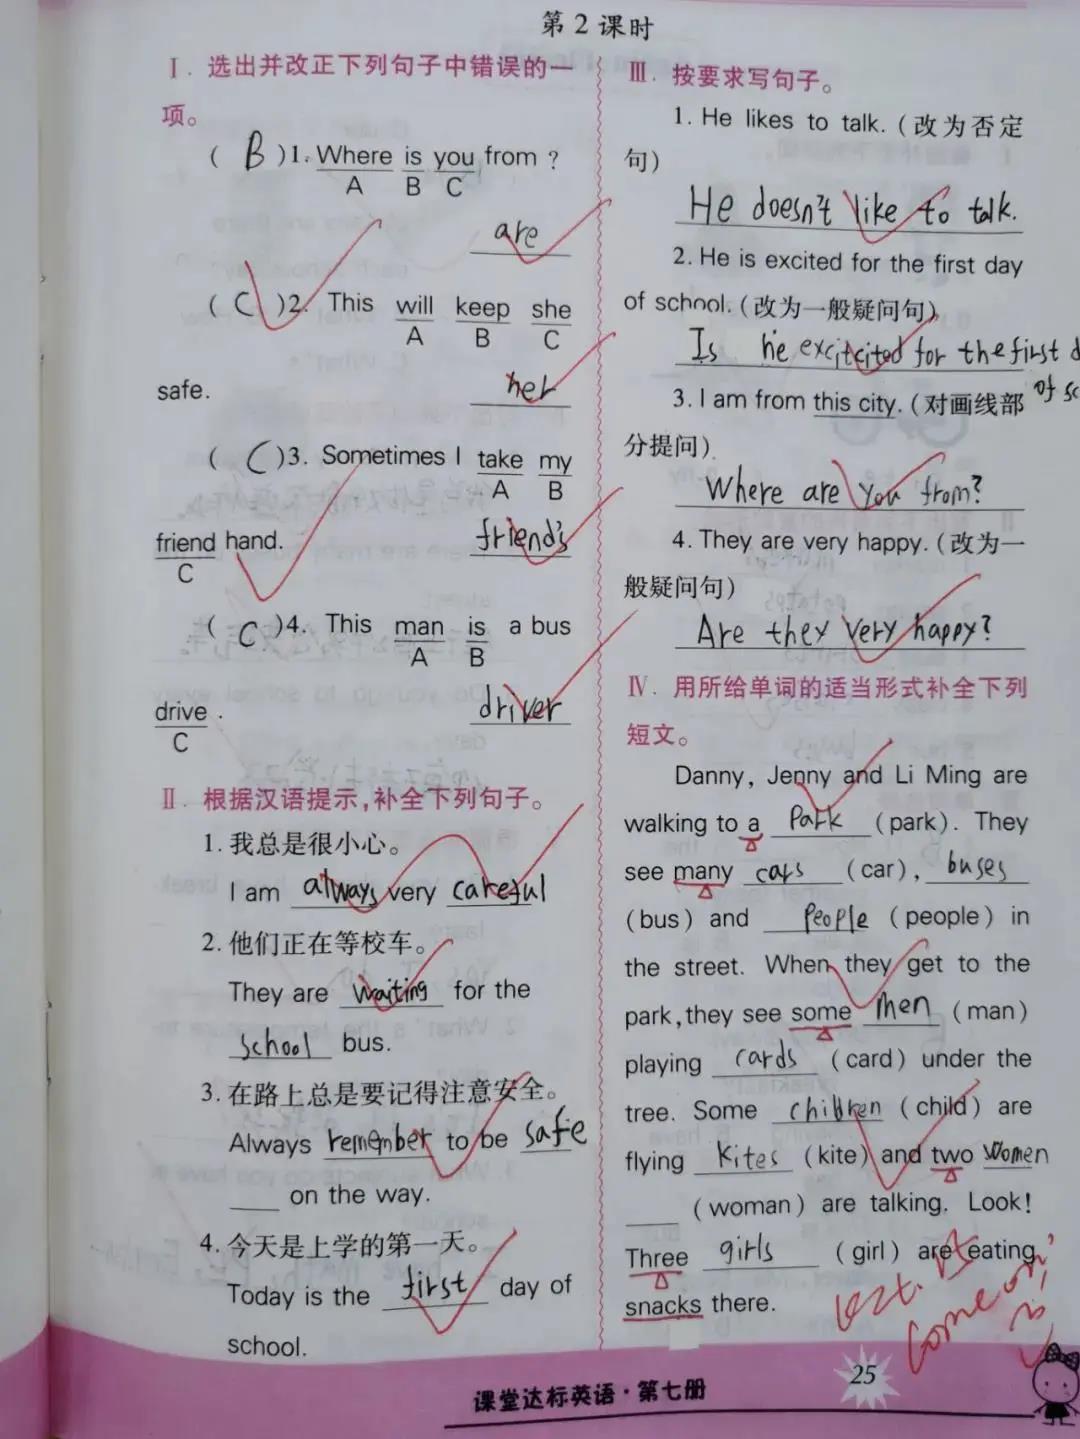 第2课时
Ⅰ. 选出并改正下列句子中错误的一
项。
( B )1. Where is you from ?
A B C
are
( C )2. This will keep she
A B C
safe. her
( C )3. Sometimes I take my
A B
friend hand. friend's
C
( C )4. This man is a bus
A B
drive . driver
C
Ⅱ. 根据汉语提示,补全下列句子。
1. 我总是很小心。
I am always very careful
2. 他们正在等校车。
They are waiting for the
school bus.
3. 在路上总是要记得注意安全。
Always remember to be safe
on the way.
4. 今天是上学的第一天。
Today is the first day of
school.
Ⅲ. 按要求写句子。
1. He likes to talk. (改为否定
句)
He doesn't like to talk.
2. He is excited for the first day
of school. (改为一般疑问句)
Is he excitcited for the first d
of sc
3. I am from this city. (对画线部
分提问)
Where are you from?
4. They are very happy. (改为一
般疑问句)
Are they very happy?
Ⅳ. 用所给单词的适当形式补全下列
短文。
Danny, Jenny and Li Ming are
walking to a Park (park). They
see many cars (car), buses
(bus) and people (people) in
the street. When they get to the
park, they see some men (man)
playing cards (card) under the
tree. Some children (child) are
flying kites (kite) and two women
(woman) are talking. Look!
Three girls (girl) are eating
snacks there.
Come on!
25
课堂达标英语·第七册